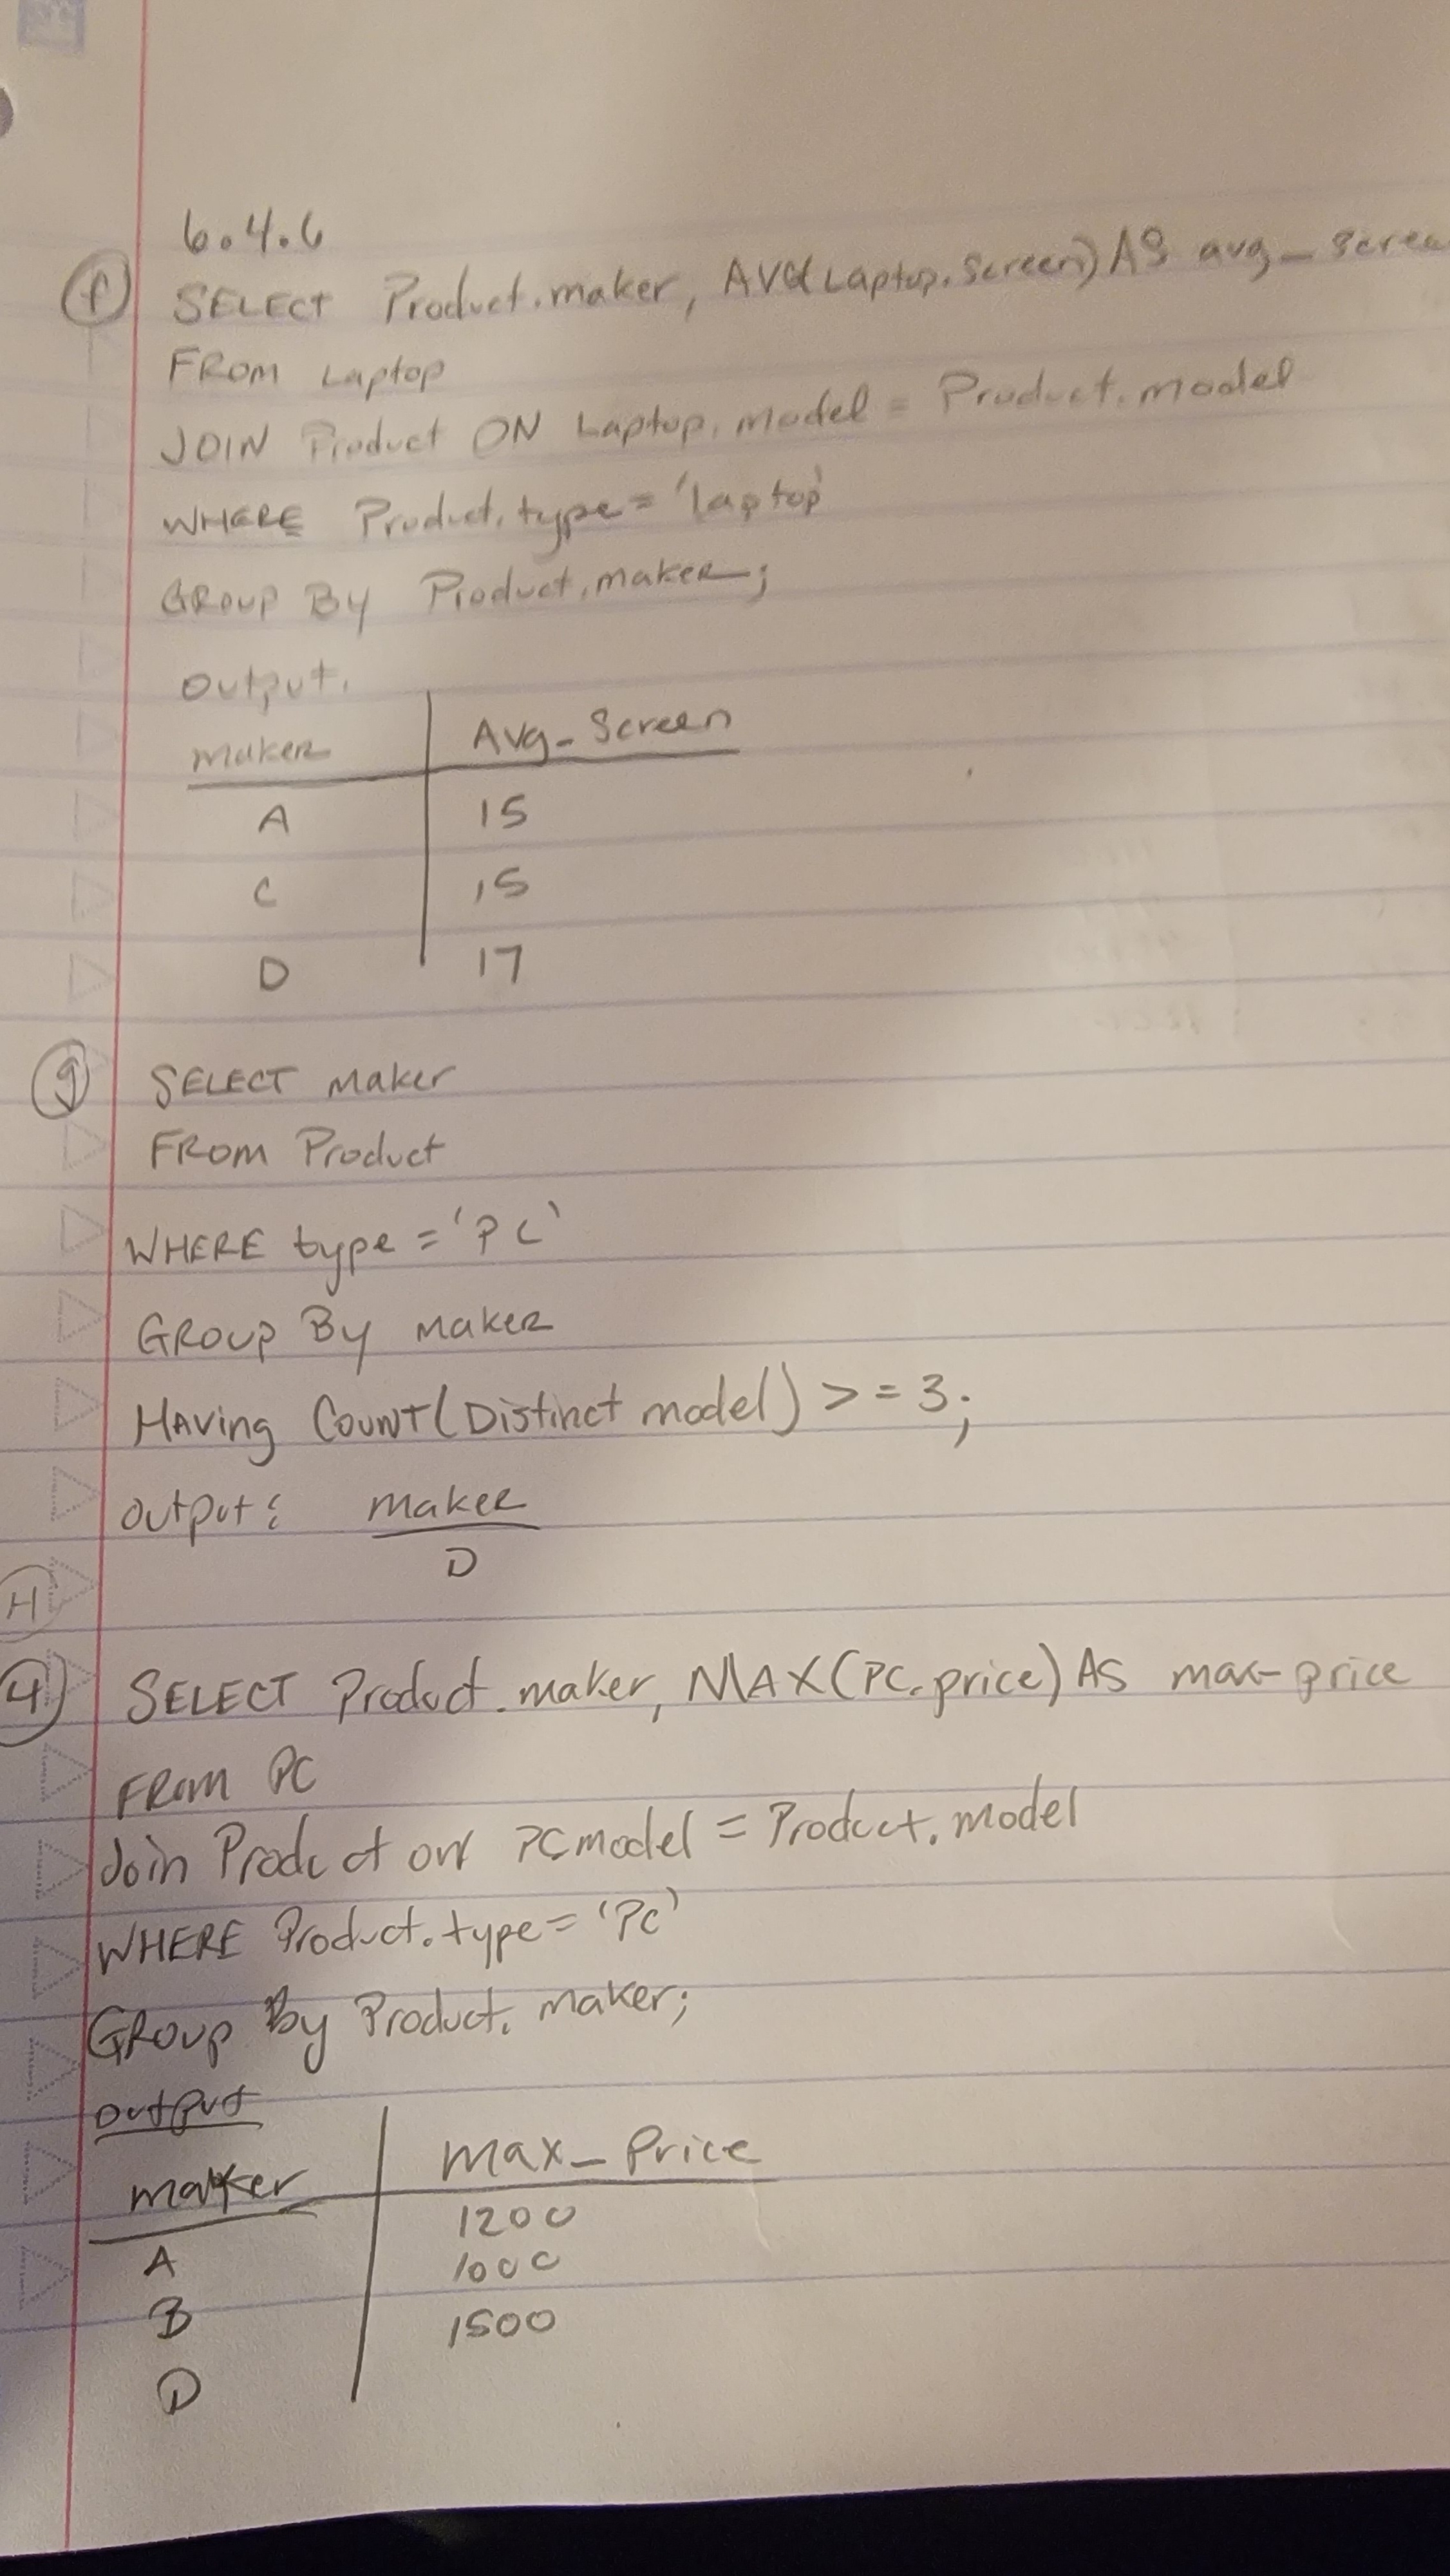 6.4.6
f SELECT Product.maker, AVG(Laptop.screen) AS avg_screen
FROM Laptop
JOIN Product ON Laptop.model = Product.model
WHERE Product.type = 'laptop'
GROUP By Product.maker;
Output.
maker Avg_Screen
A 15
C 15
D 17
g SELECT maker
FROM Product
WHERE type = 'PC'
GROUP By maker
HAVing COUNT(Distinct model) >= 3;
output: maker
D
H
4 SELECT Product.maker, MAX(PC.price) AS max-price
FROM PC
Join Product on PC.model = Product.model
WHERE Product.type = 'PC'
GROUP By Product.maker;
output
maker max_Price
A 1200
B 1000
D 1500